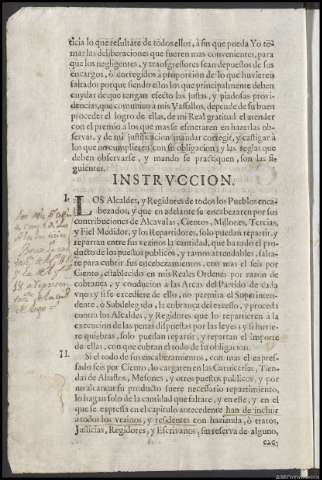 ticia lo que resultàre de todos ellos, à fin que pueda Yo tomar
las deliberaciones que fueren mas convenientes, para
que los negligentes, y transgressores sean depuestos de sus
encargos, ò corregidos à proporcion de lo que huvieren
faltado porque siendo ellos los que principalmente deben
cuydar de que tengan efecto las justas, y piadosas providencias,
que comunico à mis Vassallos, depende de su buen
proceder el logro de ellas, de mi Real gratitud el atender
con el premio à los que mas se esmeraren en hazerlas observar,
y de mi justificacion mandar corregir, y castigar à
los que no cumplieren con su obligacion; y las reglas que
deben observarse, y mando se practiquen, son las siguientes.
INSTRVCCION.
I. LOS Alcaldes, y Regidores de todos los Pueblos encabezados,
y que en adelante se encabezaren por sus
contribuciones de Alcavalas, Cientos, Millones, Tercias,
y Fiel Medidor, y los Repartidores, solo puedan repartir, y
repartan entre sus vezinos la cantidad, que baxado el producto
de los puestos publicos, y ramos arrendables, faltare
para cubrir sus encabezamientos, con mas el seis por
Ciento, establecido en mis Reales Ordenes por razon de
cobranza, y conducion à las Arcas del Partido de cada
vno; y si se excediere de ello, no permita el Superintendente,
ò Subdelegado, la cobranza del excesso, y proceda
contra los Alcaldes, y Regidores que lo repartieren à la
execucion de las penas dispuestas por las leyes; y si huviere
quiebras, solo puedan repartir, y repartan el importe
de ellas, con que cobran el todo de su obligacion.
II. Si el todo de sus encabezamientos, con mas el expressado
seis por Ciento, lo cargaren en las Carnicerias, Tiendas
de Abastos, Mesones, y otros puestos publicos, y por
no alcanzar su producto fuere necessario repartimiento,
lo hagan solo de la cantidad que faltare, y en este, y en el
que se expressa en el capitulo antecedente han de incluir
à todos los vezinos, y residentes con hazienda, ò tratos,
Justicias, Regidores, y Escrivanos, sin reserva de alguno,